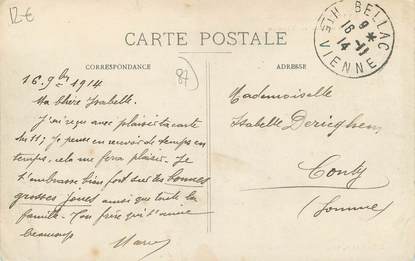 12€
CARTE POSTALE
CORRESPONDANCE
ADRESSE
87
BELLAC
9 *
16 -11
14
Vienne
16 9bre 1914
Ma chère Isabelle.
J'ai reçu avec plaisir ta carte
du 11, je pense en recevoir de temps en
temps, cela me fera plaisir. Je
t'embrasse bien fort sur tes bonnes
grosses joues ainsi que toute la
famille. Ton frère qui t'aime
beaucoup
Mademoiselle
Isabelle Dericghem
Conty
(Somme)